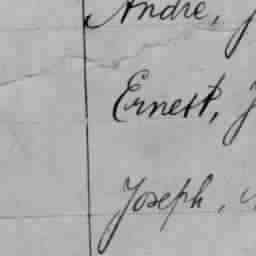 André,
Ernest, J
Joseph,